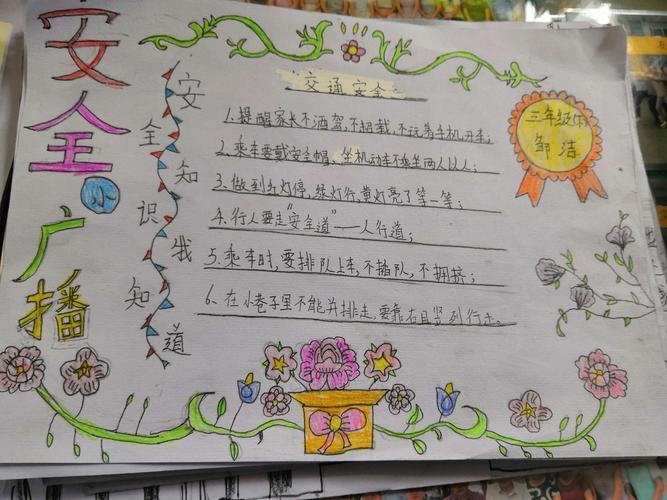 安全小广播
安全知识我知道
交通安全
1.提醒家长不酒驾,不超载,不玩着手机开车;
2.乘车要戴安全帽、坐机动车不乘坐两人以上;
3.做到红灯停,绿灯行,黄灯亮了等一等;
4.行人要走"安全道"——人行道;
5.乘车时,要排队上车,不插队,不拥挤;
6.在小巷子里不能并排走,要靠右且竖列行走。
三年级
邹洁